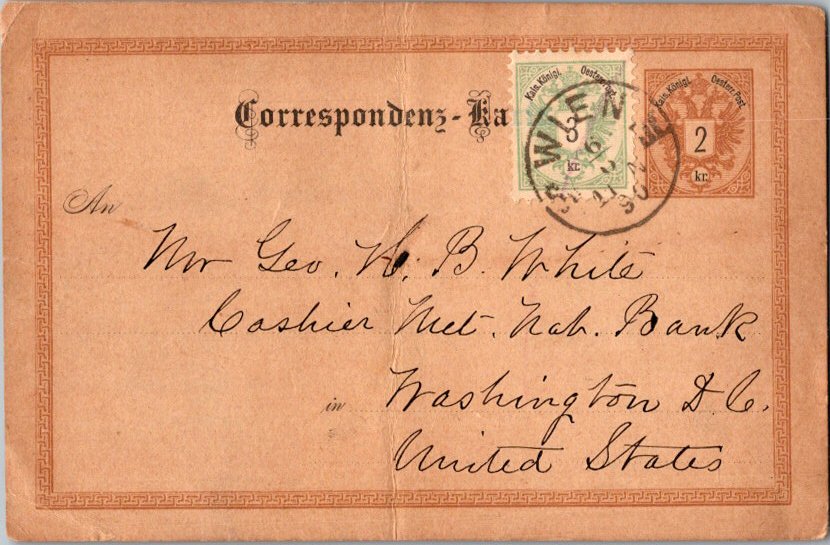 Correspondenz-Ka
Kais. Königl. Oesterr. Post
3
kr.
Kais. Königl. Oesterr. Post
2
kr.
WIEN
An
Mr Geo. H. B. White
Cashier Met. Nat. Bank
in Washington D. C.
United States